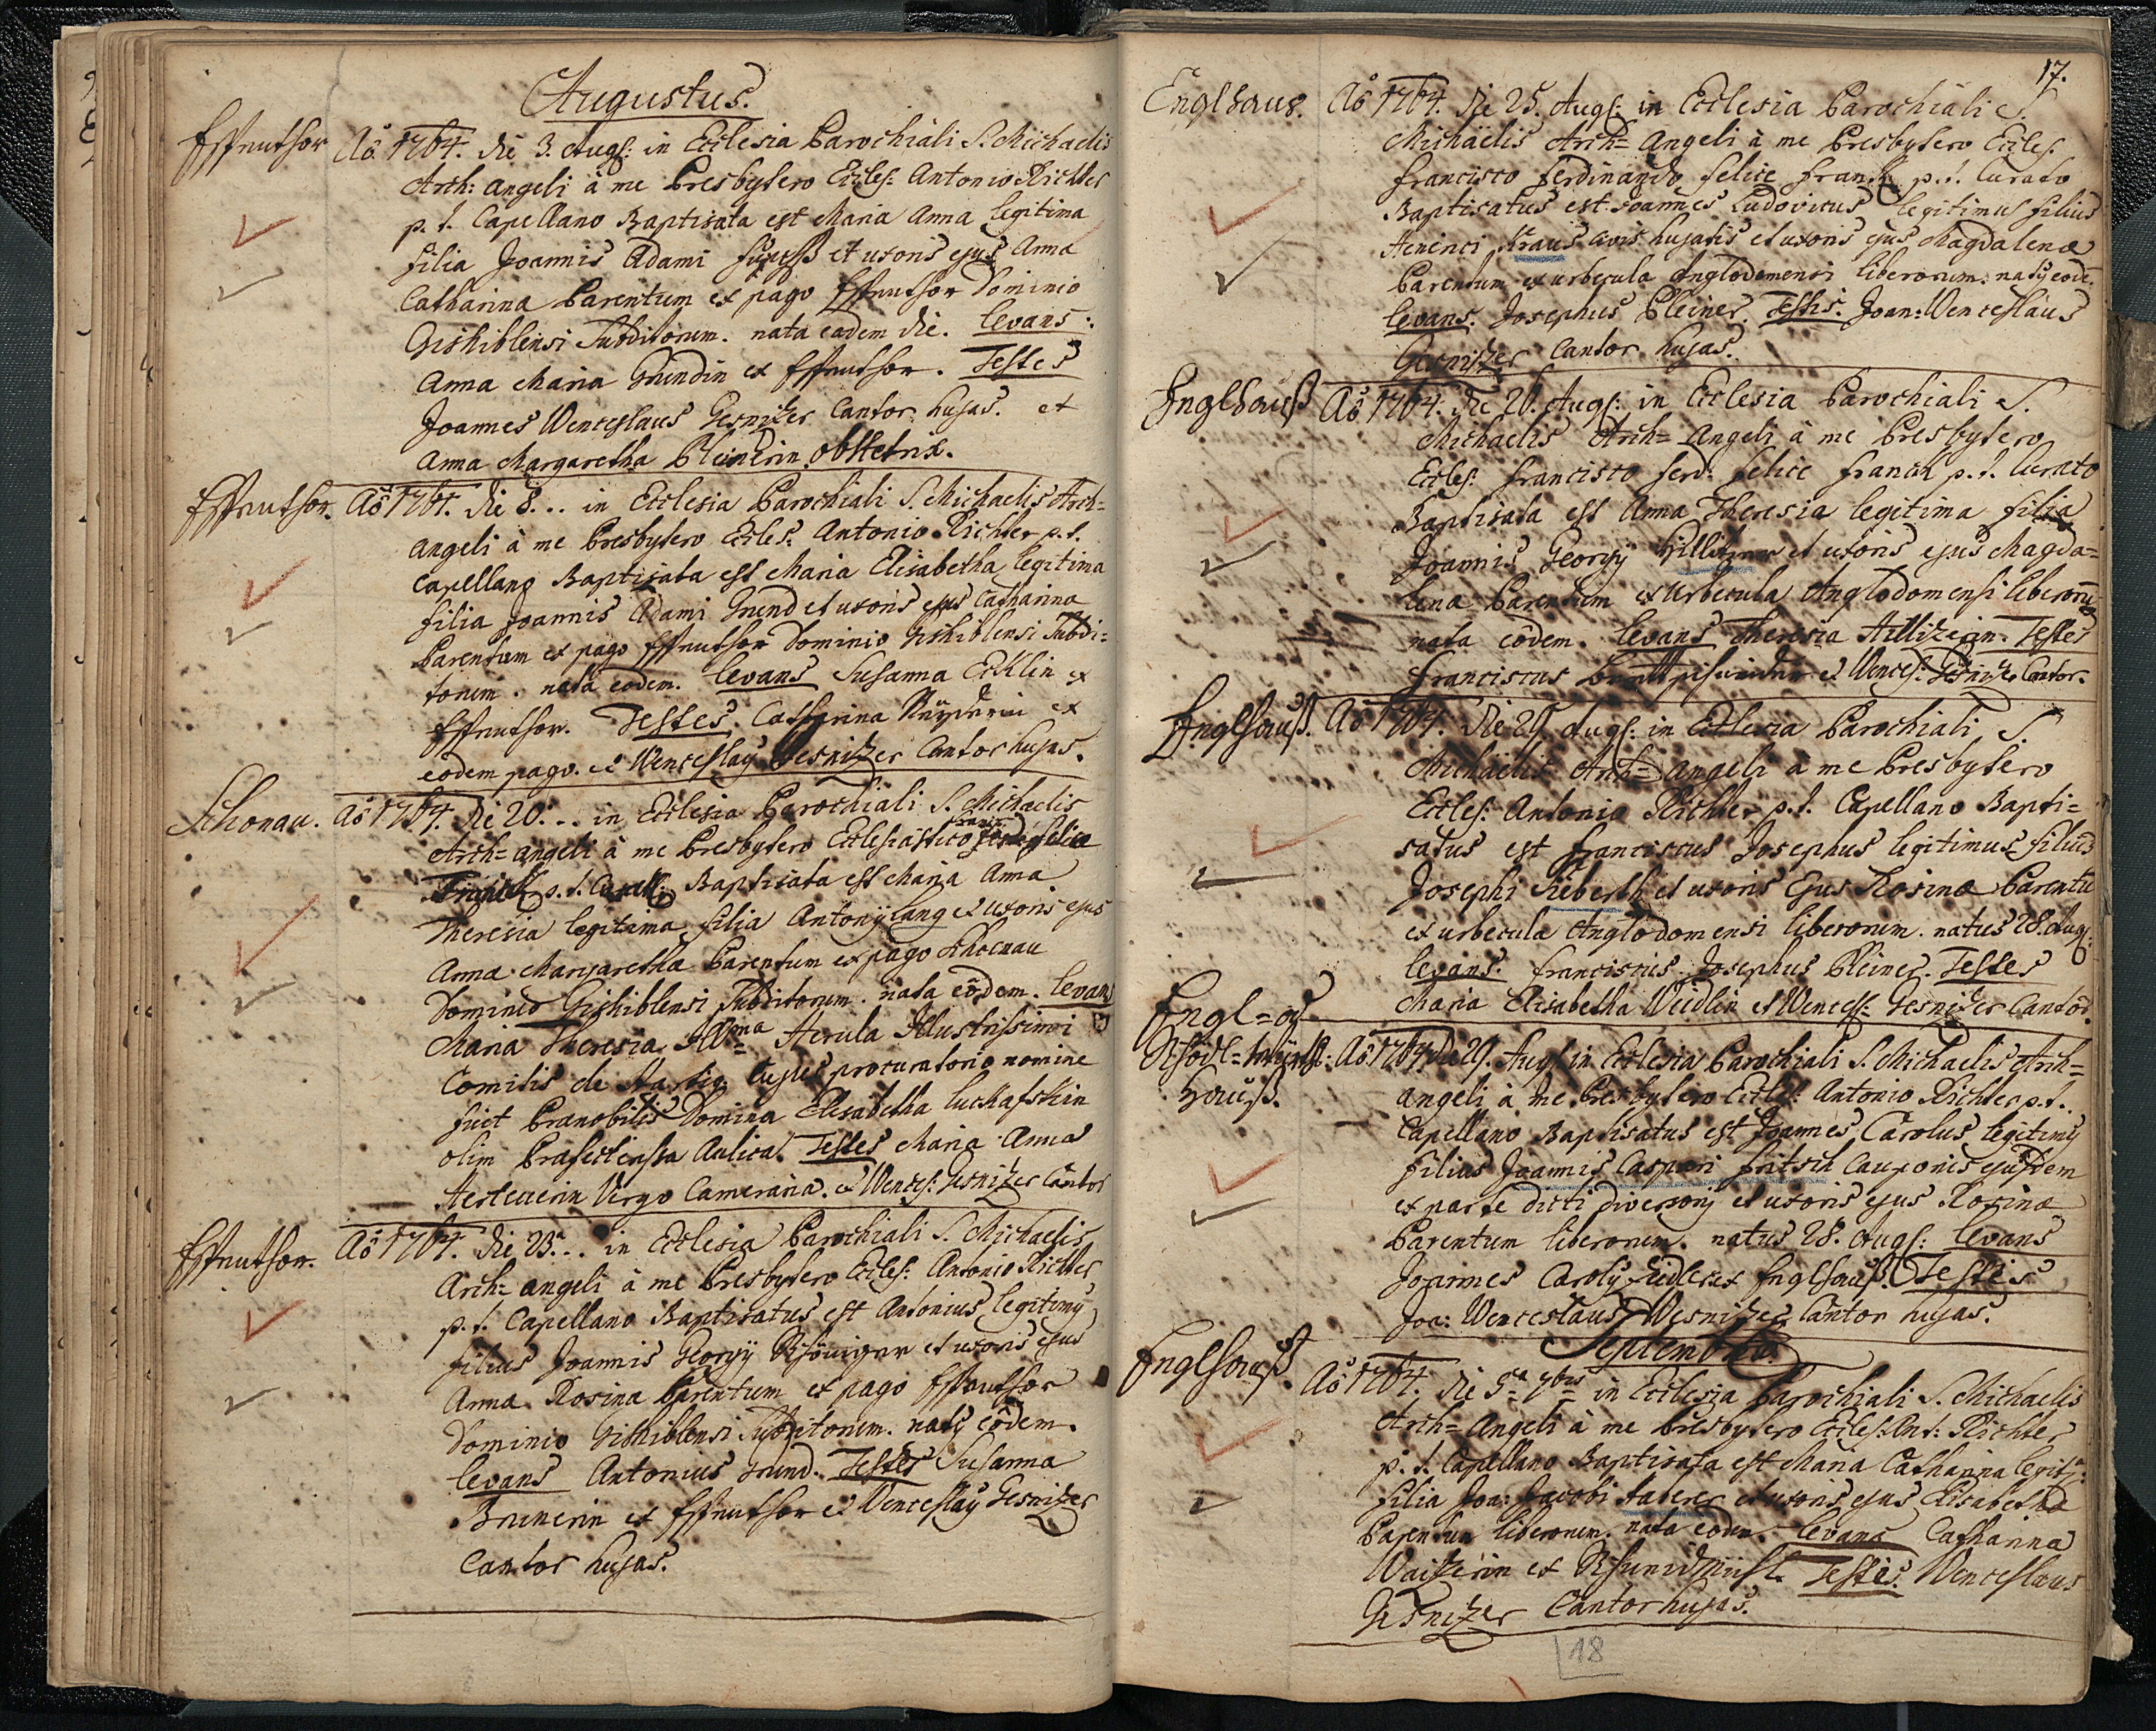 Augustus.
Essenthor
Aõ 1764. die 3. Augs: in Ecclesia Parochiali S. Michaelis
Arch: angeli à me Presbytero Eccles: Antonio Richter
p. t. Capellano Baptisata est Maria Anna legitima
filia Joannis Adami et uxoris ejus Anna
Catharina Parentum ex pago Essenthor Dominio
Gishiblensi Subditorum. nata eadem die. Levans:
Anna Maria Grundin ex Essenthor. Testes
Joannes Wenceslaus Gesnitzer Cantor hujas. et
Anna Margaretha Pleinerin obstetrix.
Essenthor.
Aõ 1764. die 8... in Ecclesia Parochiali S. Michaelis Arch=
angeli à me Presbytero Eccles: Antonio Richter p. t.
Capellano Baptisata est Maria Elisabetha legitima
filia Joannis Adami Grund et uxoris ejus Catharina
Parentum ex pago Essenthor Dominio Gishiblensi Subdi=
torum. nata eodem. Levans Susanna Ecklin ex
Essenthor. Testes. Catharina ex
eodem pago. et Wenceslaus Gesnitzer Cantor hujas.
Schonau.
Aõ 1764. die 20... in Ecclesia Parochiali S. Michaelis
Arch= angeli à me Presbytero Ecclesiastico Ferd: Felice
p. t. Baptisata est Maria Anna
Theresia legitima filia Antonij Lang et uxoris ejus
Anna Margaretha Parentum ex pago Schoenau
Dominio Gishiblensi Subditorum. nata eodem. Levans
Maria Theresia Herula Illustrissimi
Comitis de Hartig Cujus procuratorio nomine
fuit Pranobilis Domina Elisabetha
olim Prafectenssa Aulica. Testes Maria Anna
Virgo Cameraria. et Wences: Gesnitzer Cantor
Essenthor.
Aõ 1764. die 23.a.. in Ecclesia Parochiali S. Michaelis
Arch= angeli à me Presbytero Eccles: Antonio Richter
p. t. Capellano Baptisatus est Antonius legitimus
filius Joannis Georgij et uxoris ejus
Anna Rosina Parentum ex pago Essenthor
Dominio Gishiblensi Subditorum. natus eodem.
Levans Antonius Grund. Testes Susanna
Brunerin ex Essenthor et Wenceslaus Gesnitzer
Cantor hujas.
17.
Englhaus.
Aõ 1764. die 25. Augs: in Ecclesia Parochiali S.
Michaëlis Arch= Angeli à me Presbytero Eccles.
Francisco Ferdinando Felice p. t. Curato
Baptisatus est Joannes Ludovicus legitimus filius
Kraus civis hujatis et uxoris ejus Magdalena
Parentum ex urbecula Anglodomensi liberorum. natus eode.
Levans. Josephus Pleiner. Testis. Joan: Wenceslaus
Gesnitzer Cantor hujas.
Englhauß
Aõ 1764. die 26. Augs: in Ecclesia Parochiali S.
Michaelis Arch= Angeli à me Presbytero
Eccles: Francisco Ferd: Felice p. t. Curato
Baptisata est Anna Theresia legitima filia
Joannis Georgij et uxoris ejus Magda=
lena Parentum ex urbecula Anglodomensi liberorum
nata eodem. Levans Theresia Hillitzerin. Testes
Franciscus et Wences: Gesnitzer Cantor.
Englhauß.
Aõ 1764. die 29. Augs: in Ecclesia Parochiali S.
Michaelis Arch= angeli à me Presbytero
Eccles: Antonio Richter p. t. Capellano Bapti=
satus est Franciscus Josephus legitimus filius
Josephi Sieberth et uxoris ejus Rosina Parentu
ex urbecula Anglodomensi liberorum. natus 28. Aug:
Levans. Franciscus Josephus Pleiner. Testes
Maria Elisabetha Weidlin et Wences: Gesnitzer Cantor.
Hauß.
Aõ 1764 die 29. Augs: in Ecclesia Parochiali S. Michaelis Arch=
angeli à me Presbytero Eccles: Antonio Richter p. t.
Capellano Baptisatus est Joannes Carolus legitimus
filius Joannis Caspari Fritsch Cauponis ejusdem
ex parte dicti diversorij et uxoris ejus Rosina
Parentum liberorum. natus 28. Augs: Levans
Joannes Carolus ex Englhauß. Testis
Joa: Wenceslaus Gesnitzer Cantor hujas.
September.
Englhauß.
Aõ 1764. die 5ta 7bris in Ecclesia Parochiali S. Michaelis
Arch= Angeli à me Presbytero Eccles: Ant: Richter
p. t. Capellano Baptisata est Maria Catharina legit:
filia Joa: Jacobi et uxoris ejus Elisabetha
Parentum liberorum. nata eodem. Levans Catharina
ex Testis. Wenceslaus
Gesnitzer Cantor hujas.
18